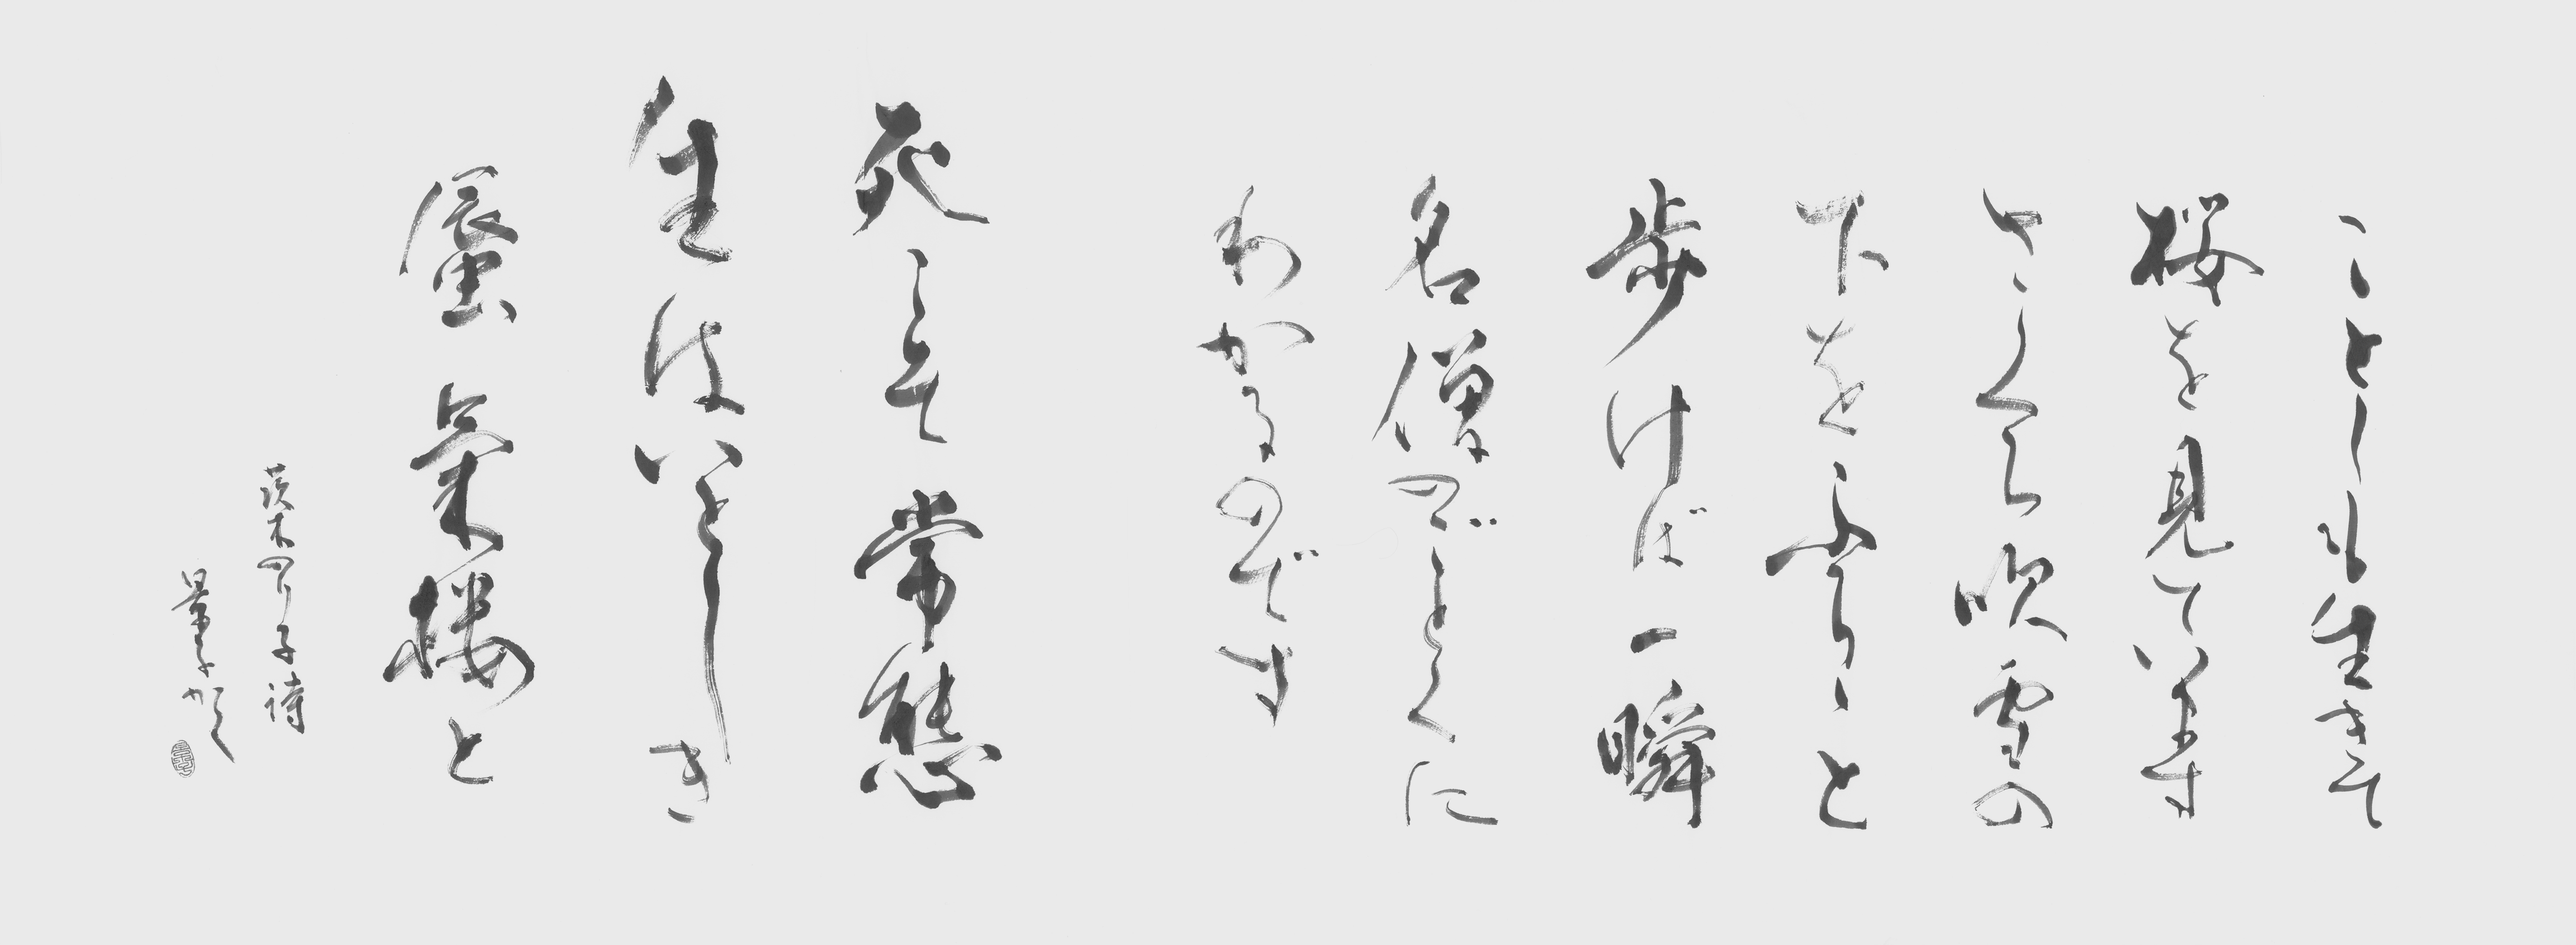 ことしも生きて
桜を見ています
さくら吹雪の
下をふらゝと
歩けば一瞬
名僧のごとくに
わかるのです
死こそ常態
生はいとしき
蜃氣楼と
茨木のり子詩
かく